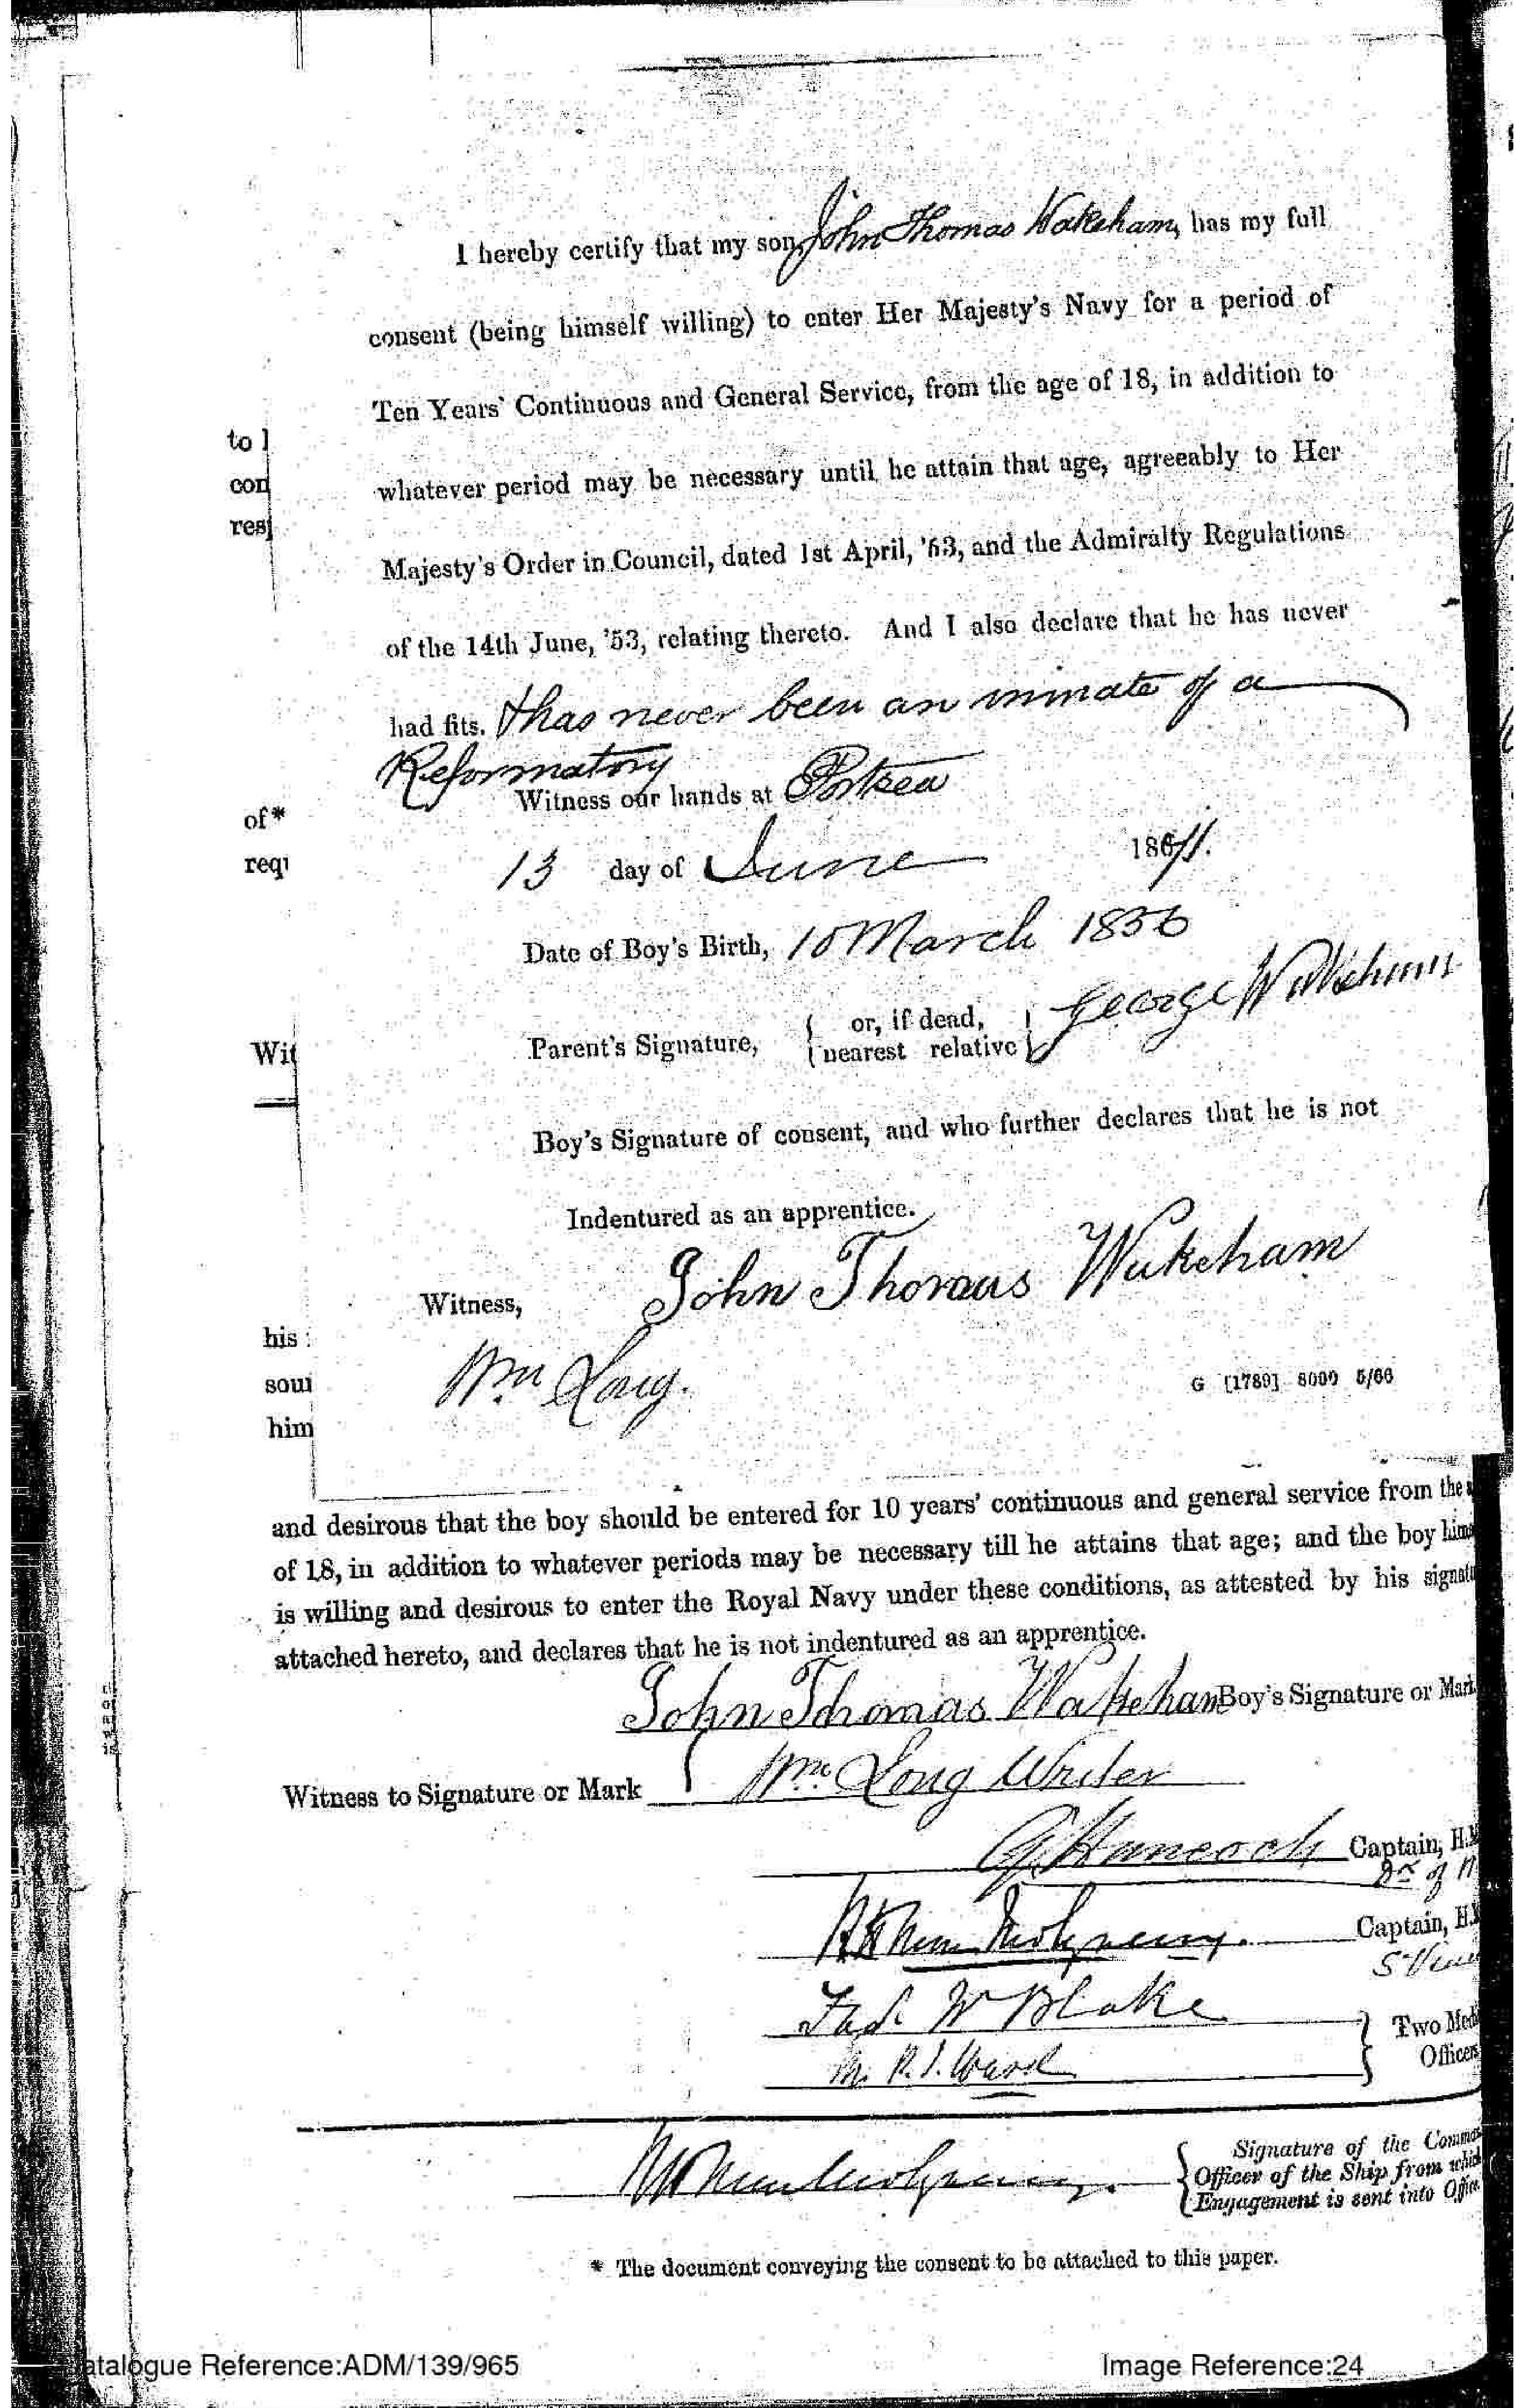 I hereby certify that my son, John Thomas Wakeham, has my full
consent (being himself willing) to enter Her Majesty's Navy for a period of
Ten Years' Continuous and General Service, from the age of 18, in addition to
whatever period may be necessary until he attain that age, agreeably to Her
Majesty's Order in Council, dated 1st April, '53, and the Admiralty Regulations
of the 14th June, '53, relating thereto. And I also declare that he has never
had fits. & has never been an inmate of a
Reformatory
Witness our hands at Portsea
13 day of June 1871.
Date of Boy's Birth, 10 March 1856
Parent's Signature, { or, if dead, nearest relative } George Wakeham
Boy's Signature of consent, and who further declares that he is not
Indentured as an apprentice.
John Thomas Wakeham
Witness,
Wm Long.
G [1789] 8000 5/66
to
con
res
of*
req
Wit
his
sou
him
and desirous that the boy should be entered for 10 years' continuous and general service from the
of 18, in addition to whatever periods may be necessary till he attains that age; and the boy hims
is willing and desirous to enter the Royal Navy under these conditions, as attested by his signatu
attached hereto, and declares that he is not indentured as an apprentice.
John Thomas Wakeham Boy's Signature or Mark
Witness to Signature or Mark } Wm. Long Writer
G. Hancock Captain, H.M
Captain, H.M
St Vinc
Fredk W Blake } Two Medi
Officers
{ Signature of the Comman
Officer of the Ship from which
Engagement is sent into Office
* The document conveying the consent to be attached to this paper.
atalogue Reference:ADM/139/965 Image Reference:24